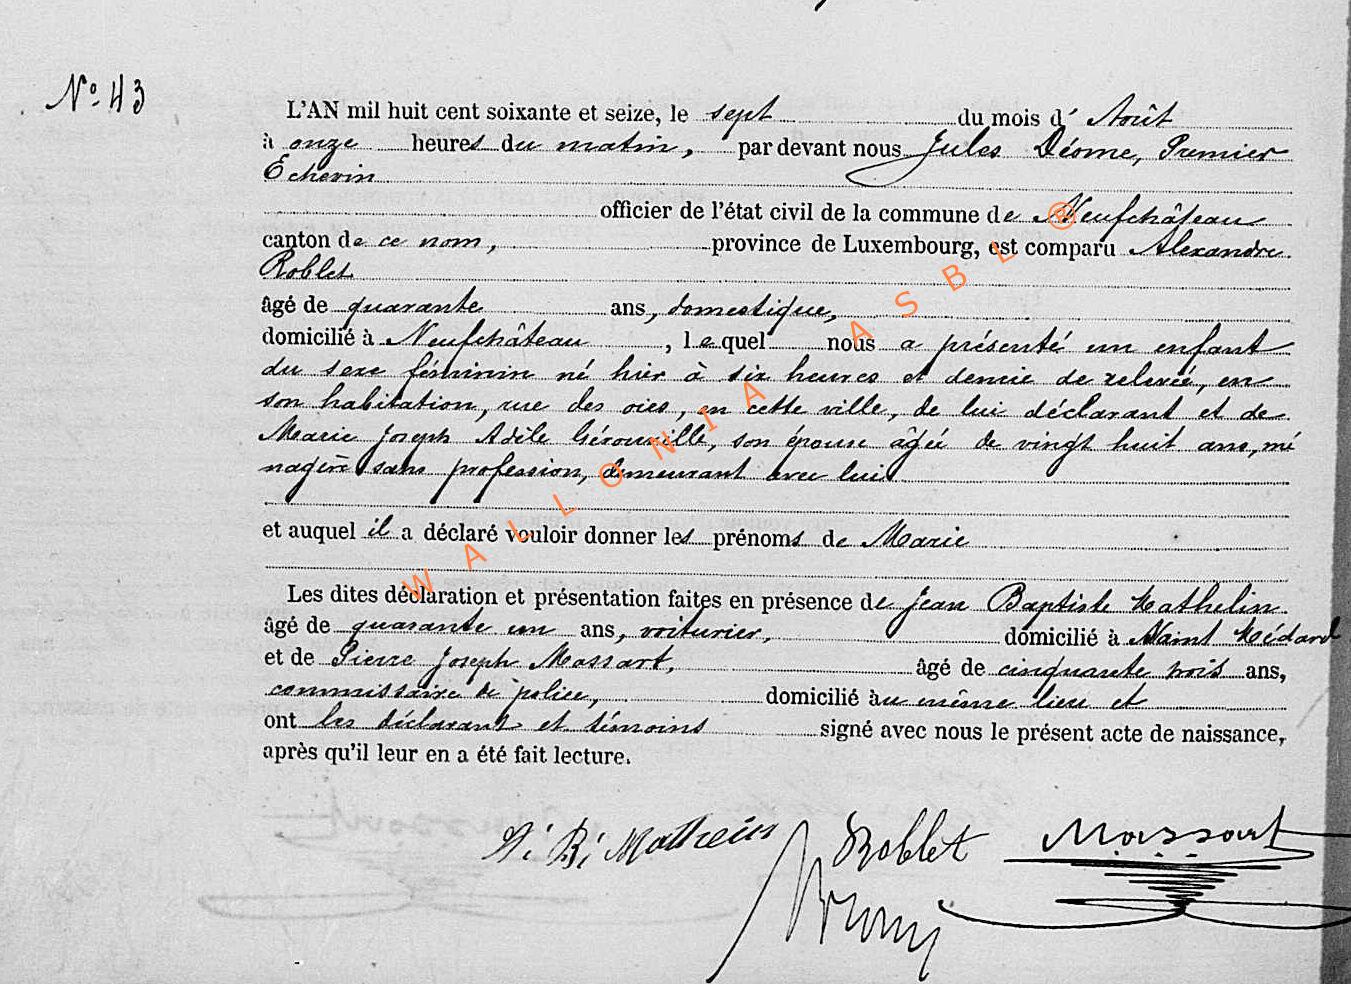 N° 43
L'AN mil huit cent soixante et seize, le sept du mois d' Août
à onze heures du matin, par devant nous Jules Déome, Premier
Echevin
officier de l'état civil de la commune de Neufchâteau
canton de ce nom, province de Luxembourg, est comparu Alexandre
Roblet
âgé de quarante ans, domestique,
domicilié à Neufchâteau, lequel nous a présenté un enfant
du sexe féminin né hier à six heures et demie de relevée, en
son habitation, rue des oies, en cette ville, de lui déclarant et de
Marie Joseph Adèle Gérouville, son épouse âgée de vingt huit ans, mé
nagère sans profession, demeurant avec lui
et auquel il a déclaré vouloir donner les prénoms de Marie
Les dites déclaration et présentation faites en présence de Jean Baptiste Mathelin
âgé de quarante un ans, voiturier, domicilié à Saint Médard
et de Pierre Joseph Massart, âgé de cinquante trois ans,
commissaire de police, domicilié àu même lieu et
ont les déclarant et témoins signé avec nous le présent acte de naissance,
après qu'il leur en a été fait lecture.
Mathelin Roblet Massart
WALLONIA ASBL ®